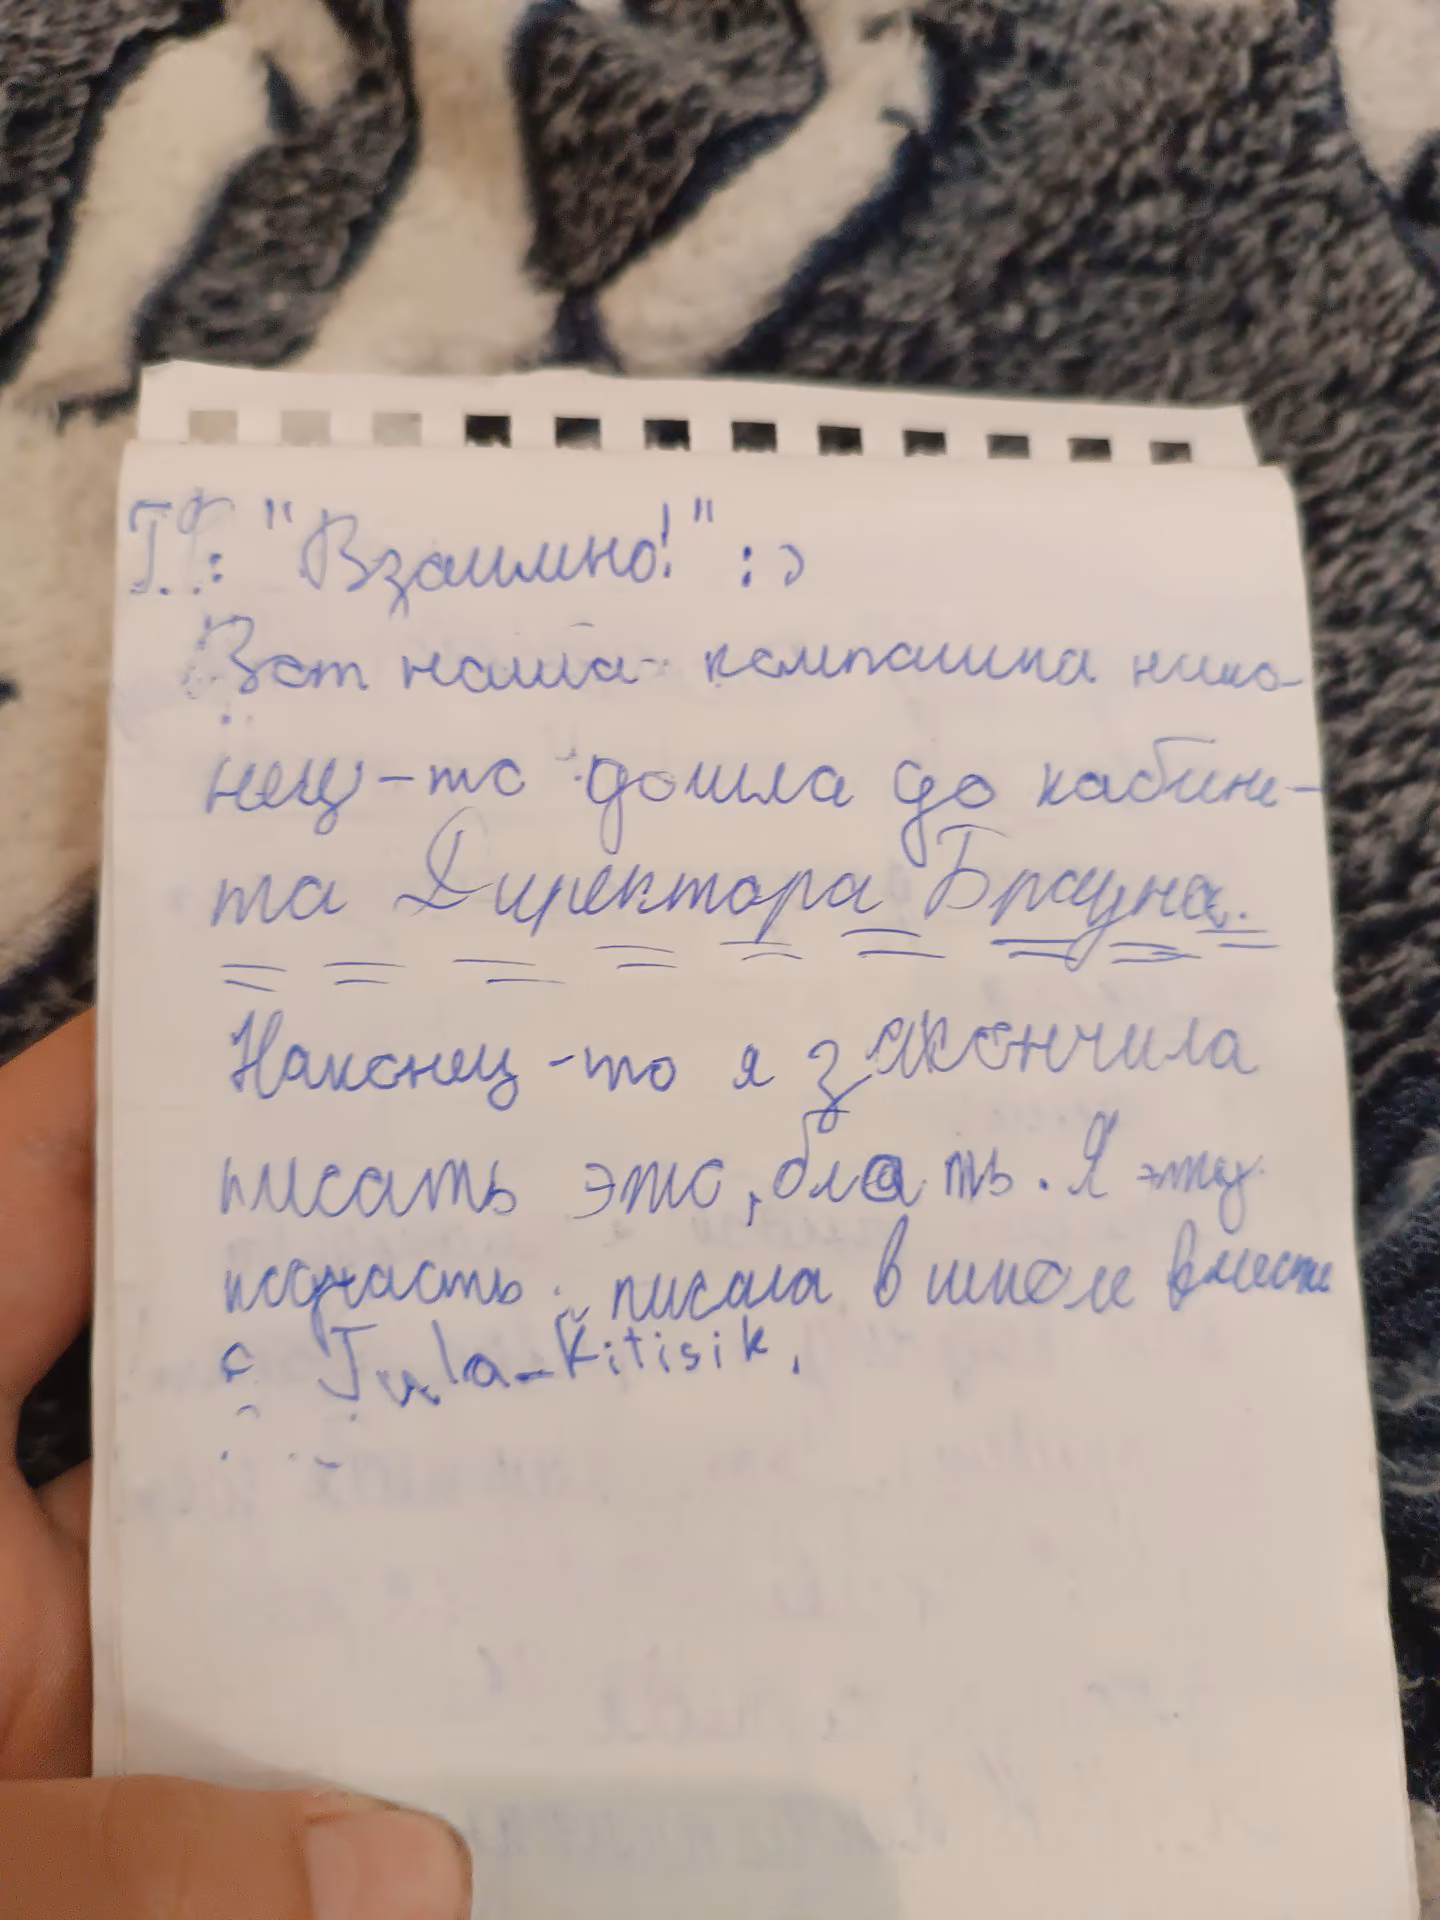 Т.Г.: "Взаимно!" :)
Вот наша компашка нако-
нец-то дошла до кабине-
та Директора Брауна.
Наконец-то я закончила
писать это, блать. Я эту
писала в школе вместе
с Jula-Kitisik.